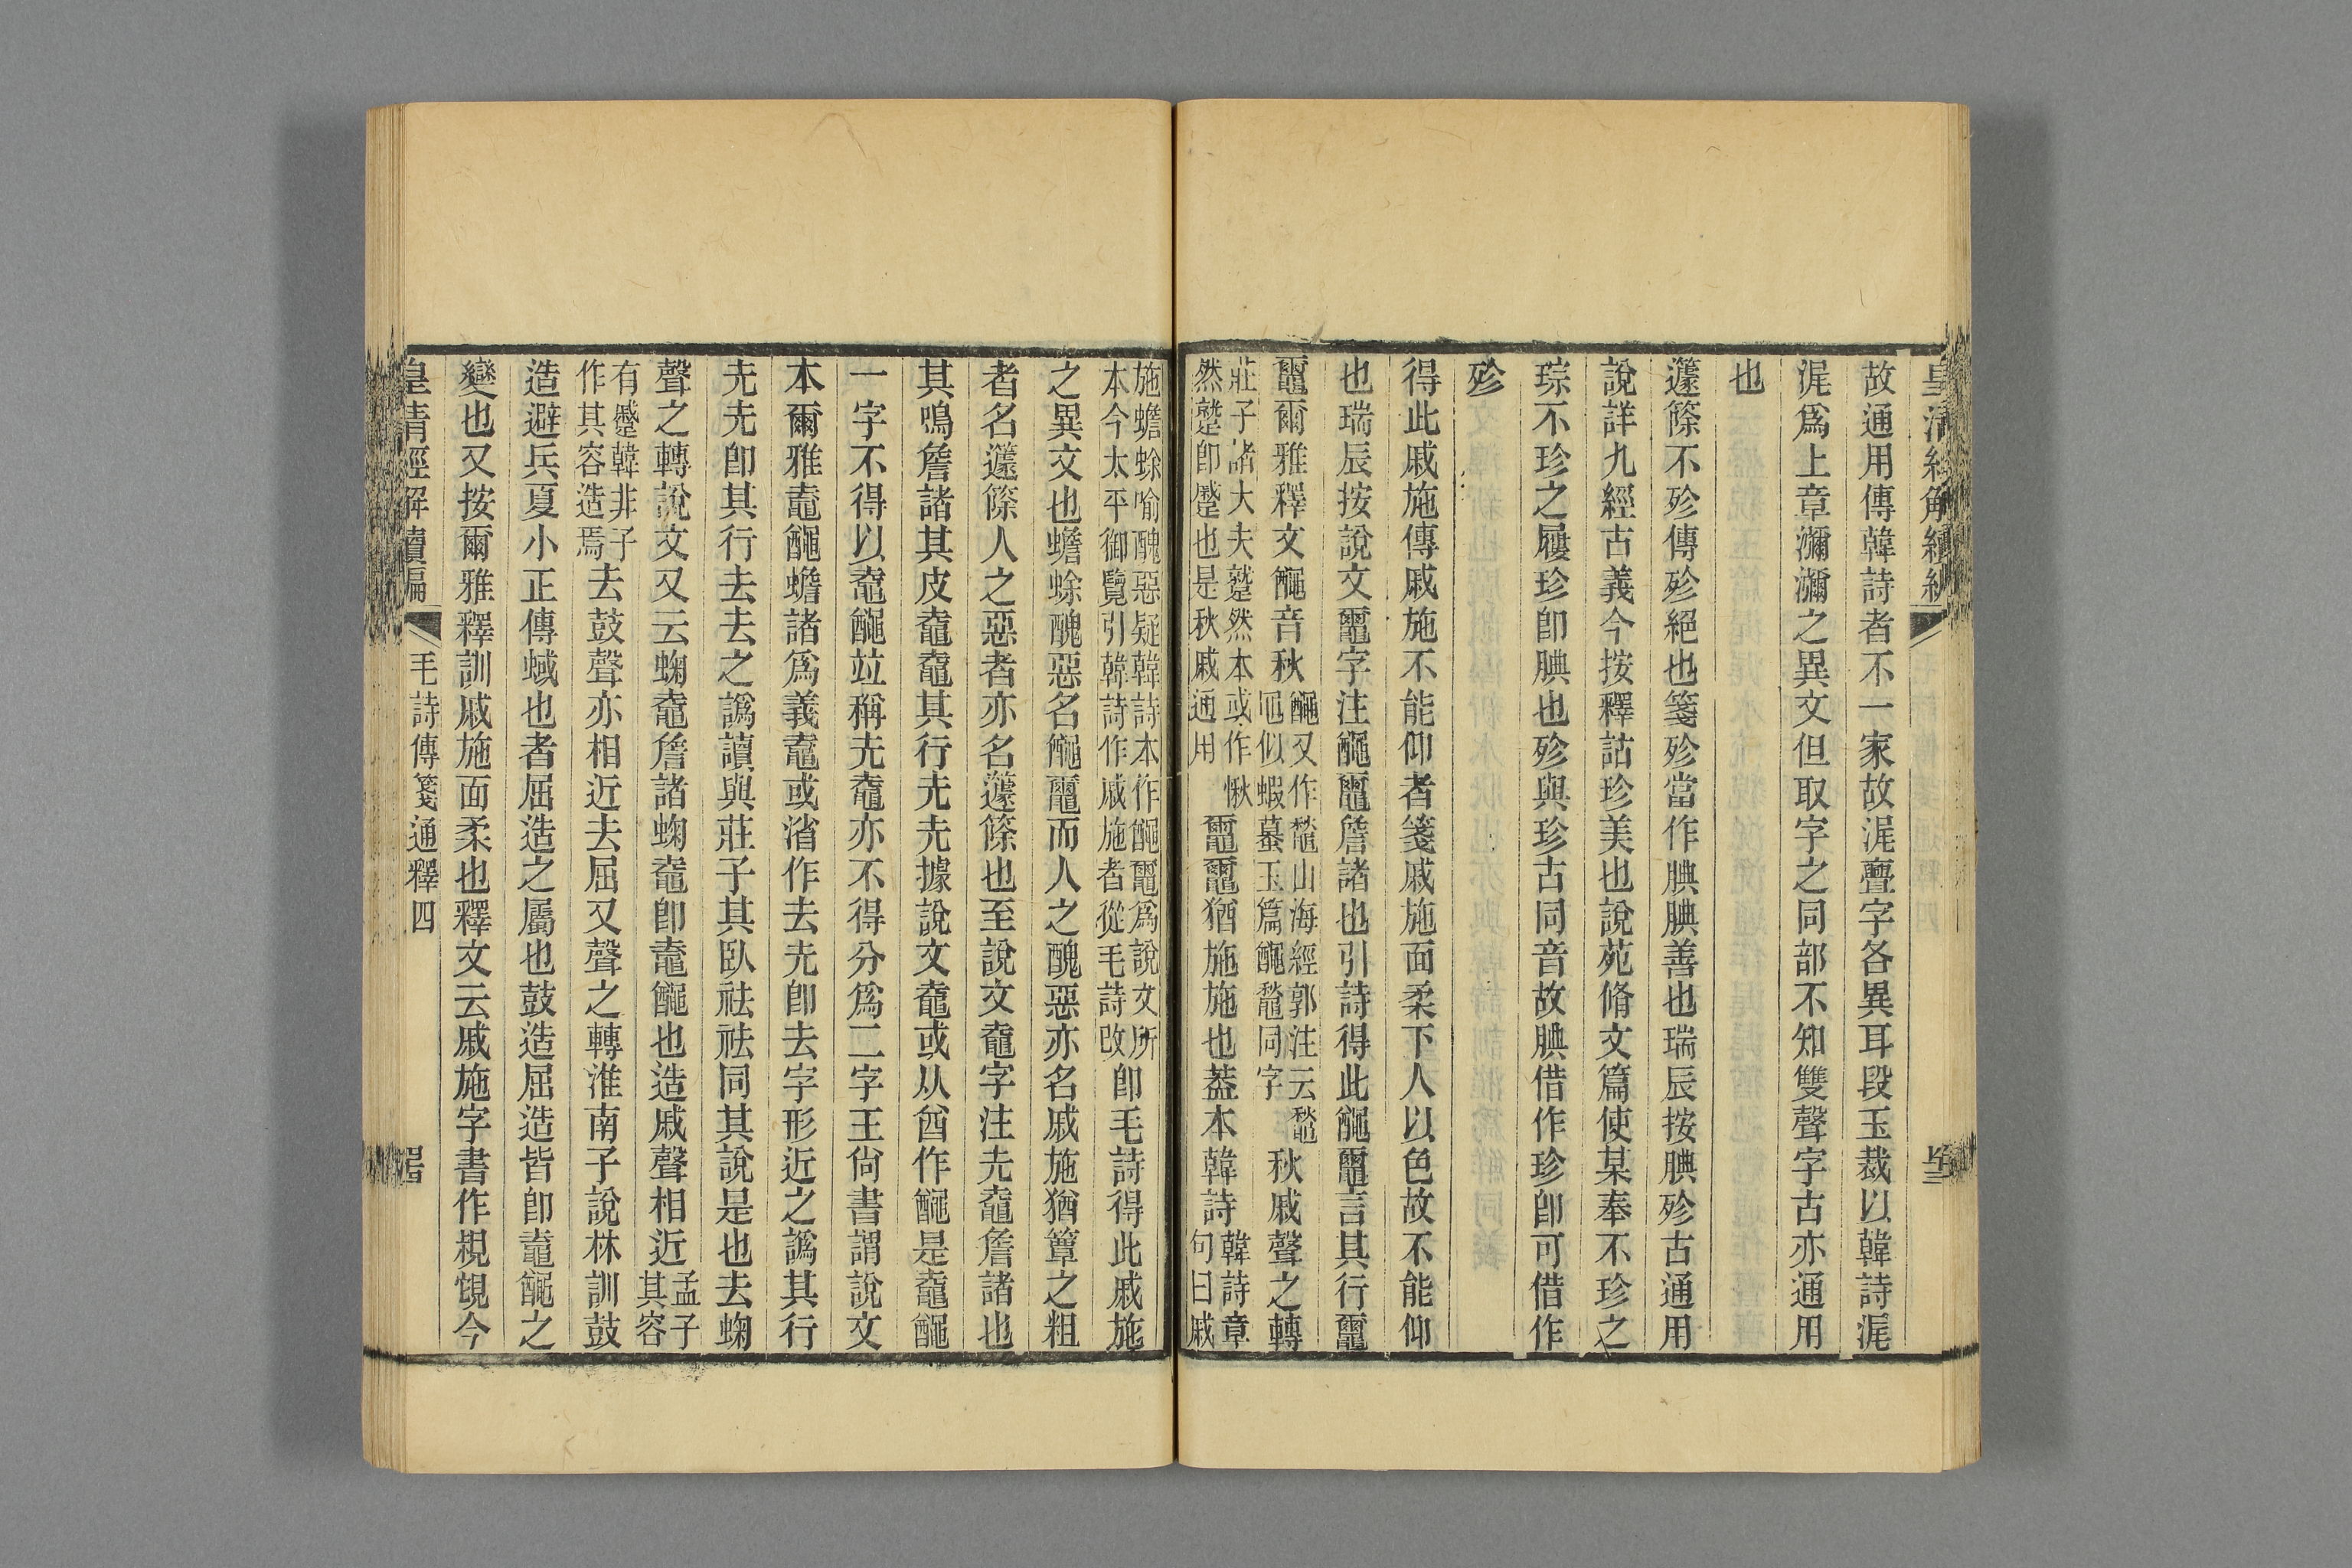 皇清經解續編
故通用傳韓詩者不一家故浘亹字各異耳段玉裁以韓詩浘
浘爲上章瀰瀰之異文但取字之同部不知雙聲字古亦通用
也
籧篨不殄傳殄絕也箋殄當作腆腆善也瑞辰按腆殄古通用
說詳九經古義今按釋詁珍美也說苑脩文篇使某奉不珍之
琮不珍之屨珍卽腆也殄與珍古同音故腆借作珍卽可借作
殄
得此戚施傳戚施不能仰者箋戚施面柔下人以色故不能仰
也瑞辰按說文鼀字注𪓰鼀詹諸也引詩得此𪓰鼀言其行鼀
鼀爾雅釋文𪓰音秋
𪓰又作鼀山海經郭注云鼀
黽似蝦蟇玉篇𪓰鼀同字
秋戚聲之轉
莊子諸大夫蹵然本或作愀
然蹵卽蹙也是秋戚通用
鼀鼀猶施施也葢本韓詩
韓詩章
句曰戚
施蟾蜍喻醜惡疑韓詩本作𪓰鼀爲說文所
本今太平御覽引韓詩作戚施者從毛詩改
卽毛詩得此戚施
之異文也蟾蜍醜惡名𪓰鼀而人之醜惡亦名戚施猶簟之粗
者名籧篨人之惡者亦名籧篨也至說文鼀字注圥鼀詹諸也
其鳴詹諸其皮鼀鼀其行圥圥據說文鼀或从酋作𪓰是鼀𪓰
一字不得以鼀𪓰竝稱圥鼀亦不得分爲二字王尙書謂說文
本爾雅鼀𪓰蟾諸爲義鼀或渻作去圥卽去字形近之譌其行
圥圥卽其行去去之譌讀與莊子其臥祛祛同其說是也去蜘
聲之轉說文又云蜘鼀詹諸蜘鼀卽鼀𪓰也造戚聲相近
孟子
其容
有蹙韓非子
作其容造焉
去鼓聲亦相近去屈又聲之轉淮南子說林訓鼓
造避兵夏小正傳蜮也者屈造之屬也鼓造屈造皆卽鼀𪓰之
變也又按爾雅釋訓戚施面柔也釋文云戚施字書作規覤今
皇清經解續編
毛詩傳箋通釋四